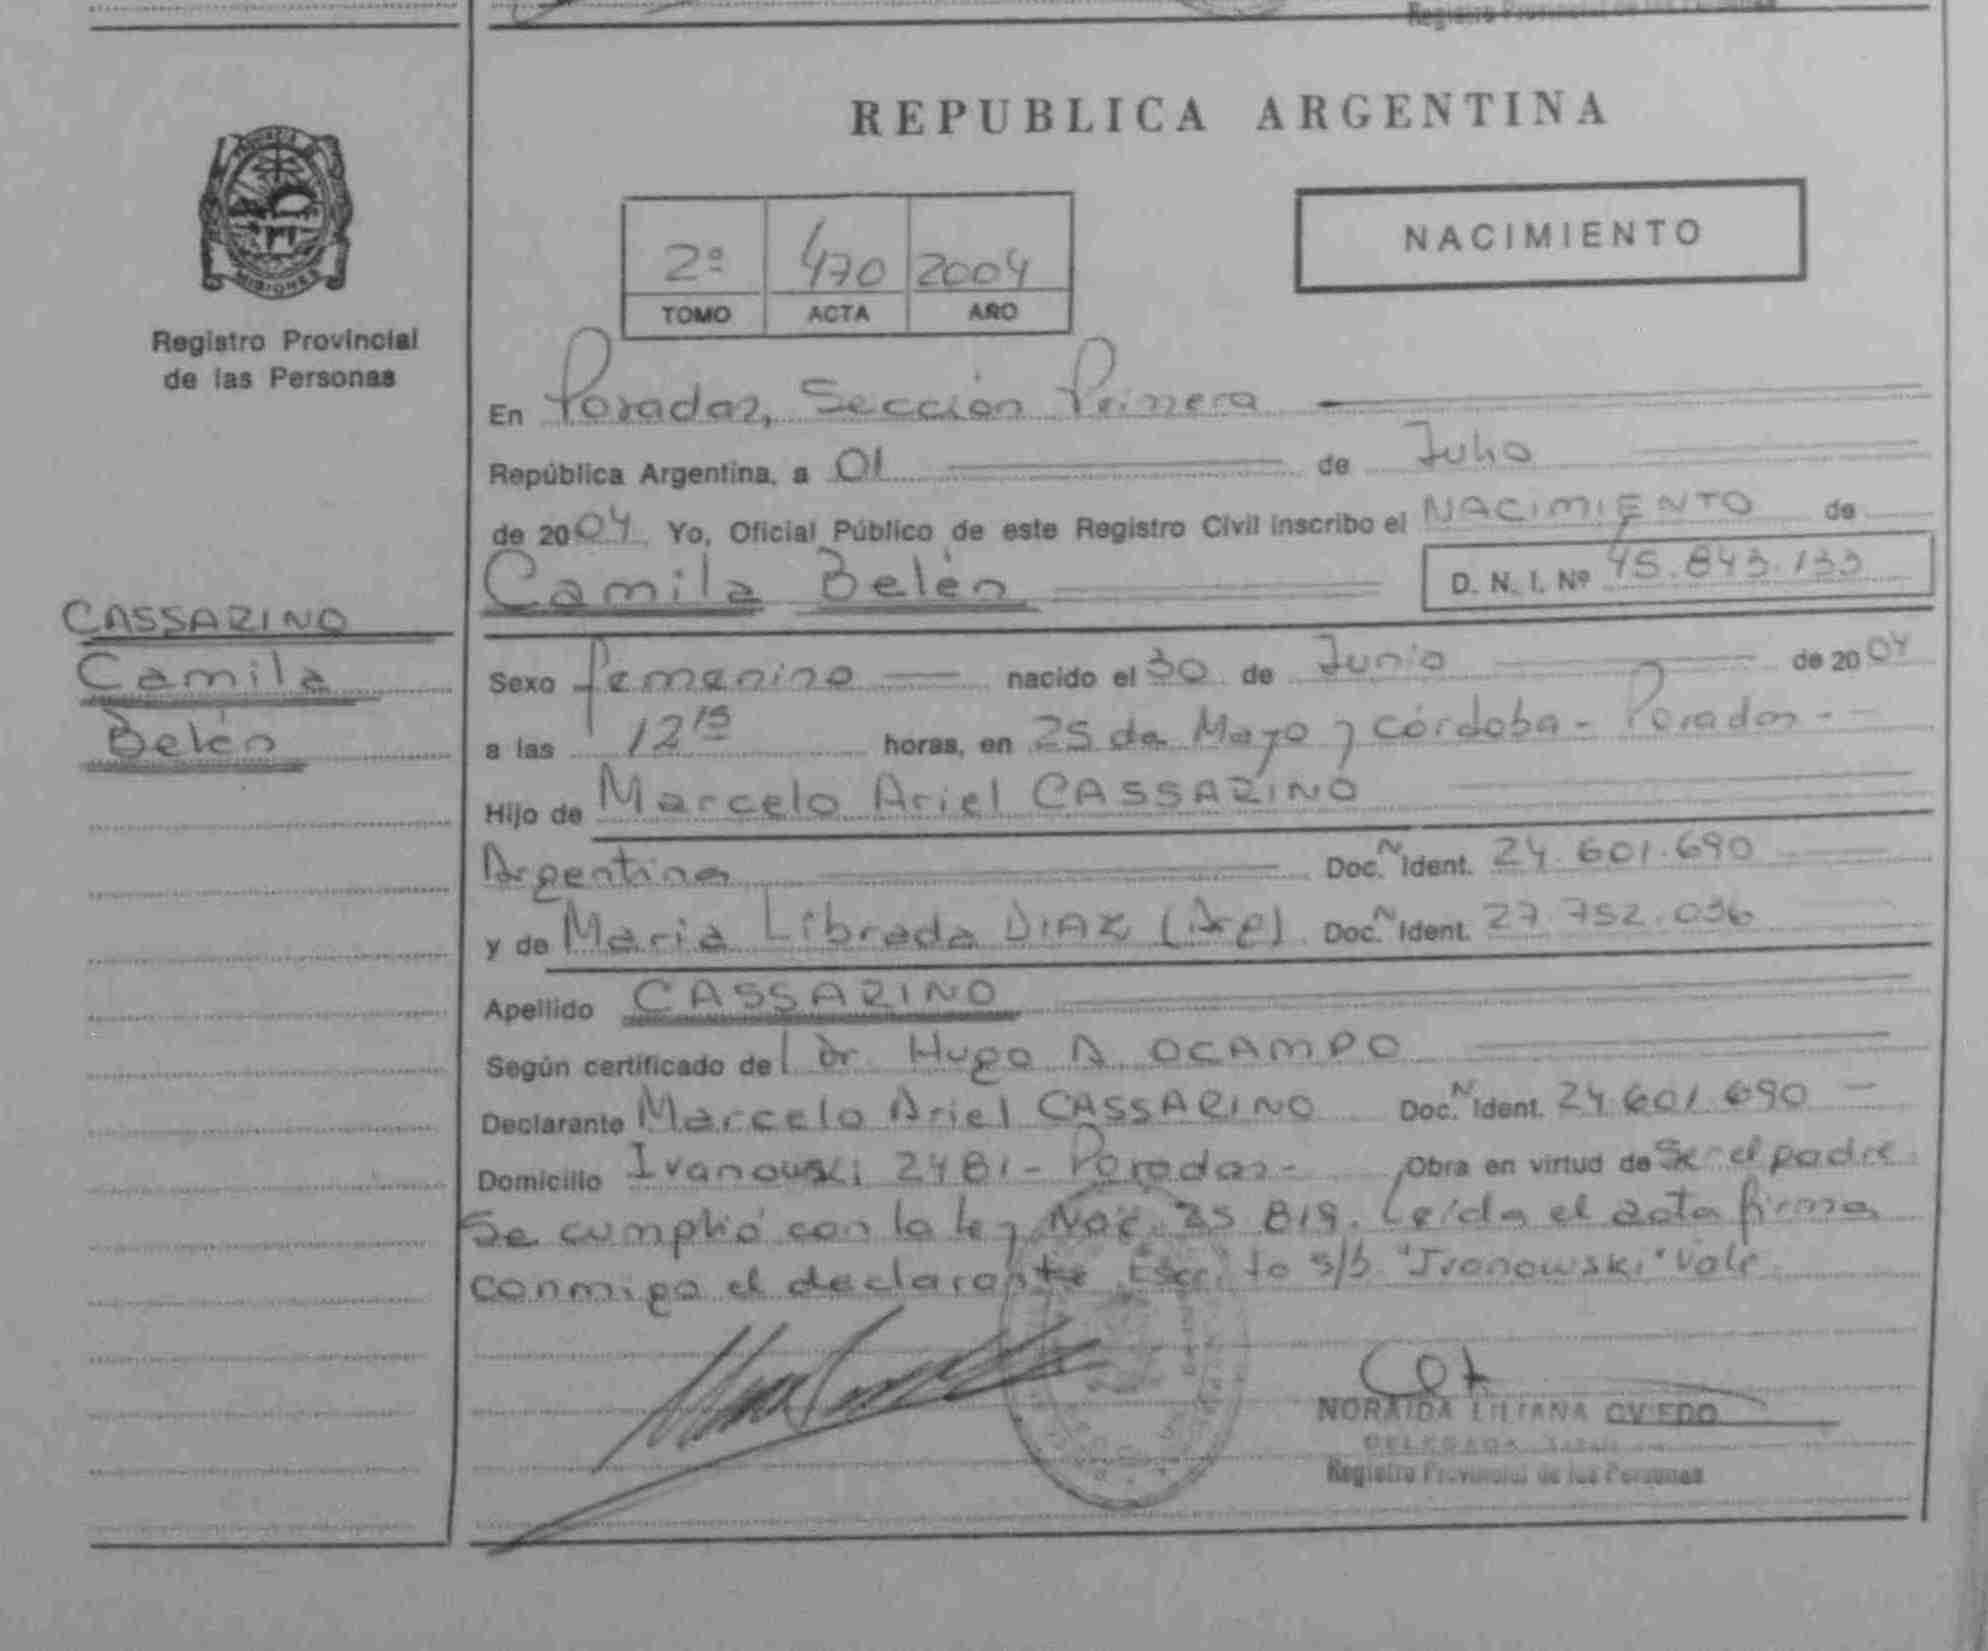 Registro Provincial de las Personas
REPUBLICA ARGENTINA
NACIMIENTO
2º 470 2004
TOMO ACTA AÑO
MISIONES
Registro Provincial
de las Personas
En Posadas, Sección Primera
República Argentina, a 01 de Julio
de 2004 Yo, Oficial Público de este Registro Civil inscribo el NACIMIENTO de
Camila Belén D. N. I. Nº 45.843.133
CASSARINO
Camila
Belén
Sexo femenino nacido el 30 de Junio de 2004
a las 12 15 horas, en 25 de Mayo y córdoba - Posadas - -
Hijo de Marcelo Ariel CASSARINO
Argentina Doc. N Ident. 24.601.690
y de Maria Librada DIAZ (Arg) Doc. N Ident. 27.752.036
Apellido CASSARINO
Según certificado del Dr. Hugo A OCAMPO
Declarante Marcelo Ariel CASSARINO Doc. N Ident. 24.601.690 -
Domicilio Ivanouski 2481 - Posadas - Obra en virtud de ser el padre
Se cumplió con la ley Nac. 25 819. Leída el acta firma
conmigo el declarante Escrito s/b "Ivanowski" vale
NORAIDA LILIANA OVIEDO
DELEGADA
Registro Provincial de las Personas